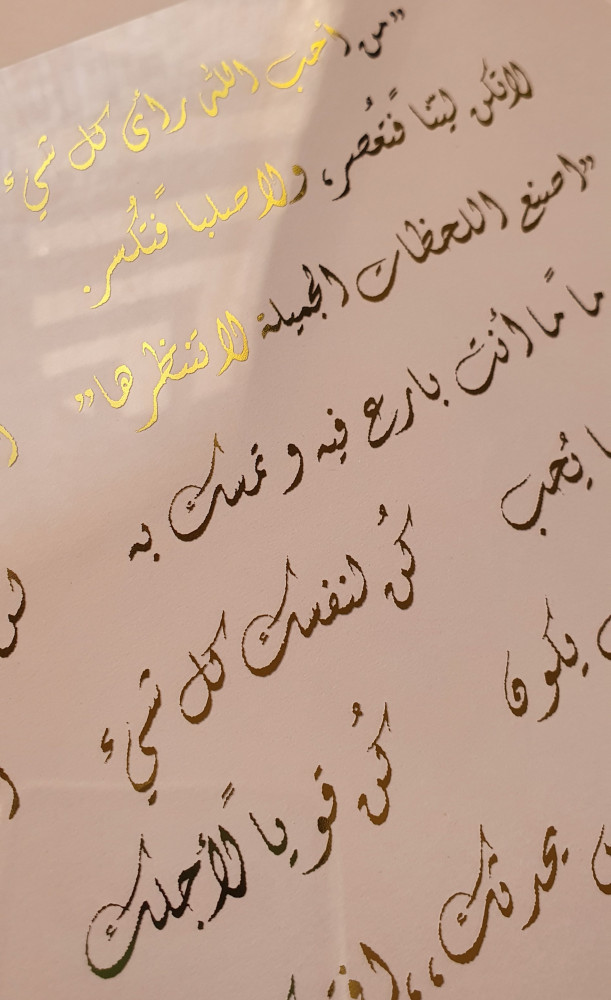 ”من أحب الله رأى كل شيء
لاتكن لينا فتُعصر، ولا صلبا فتُكسر.
”اصنع اللحظات الجميلة لا تنتظرها”
ما أنت بارع فيه و تمسك به
يُحب
كُن لنفسك كل شيء
يكون
كُن قوياً لأجلك
يحدثك،،